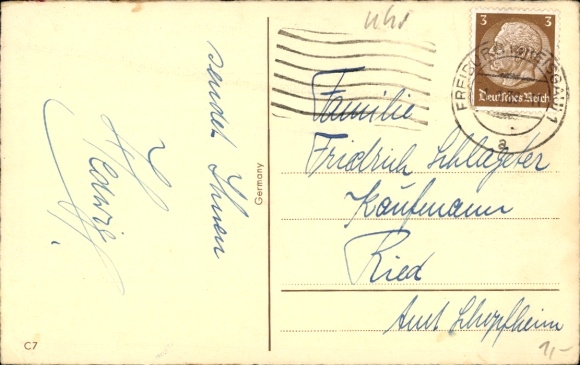 uhr
3 3
Deutsches Reich
FREIBURG (BREISGAU) 1
a
sendet Ihnen
Hedwig.
Germany
Familie
Fridrich Schlageter
Kaufmann
Ried
Amt Schopfheim
C7
1,-